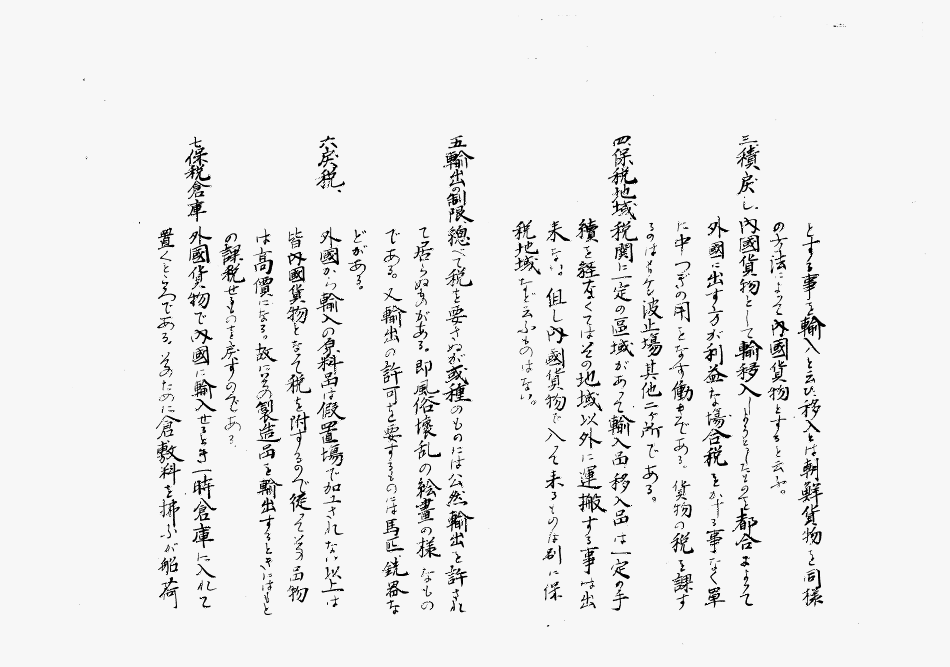 とする事を輸入と云ひ移入とは朝鮮貨物を同様
の方法によって内國貨物とすると云ふ。
三、積戻し、内國貨物として輸移入しようとしたものを都合によって
外國に出す方が利益な場合税をかける事なく單
に中つぎの用をなす働きである。貨物の税を課す
るのは 波止場其他二ヶ所である。
四、保税地域 税関に一定の區域があって輸入品、移入品は一定の手
續を経なくてはその地域以外に運搬する事は出
来ない。但し内國貨物で入って来るものは別に保
税地域など云ふものはない。
五、輸出の制限、總べて税を要さぬが或種のものには公然輸出を許され
て居らぬものがある。即風俗壊乱の絵畫の様なもの
である。又輸出の許可を要するものは馬匹、銃器な
どがある。
六、戻税、 外國から輸入の原料品は假置場で加工されない以上は
皆内國貨物となって税を附するので従って其の品物
は高價になる。故に其の製造品を輸出するときにはもと
の課税せしものを戻すのである。
七、保税倉庫 外國貨物で内國に輸入せるとき一時倉庫に入れて
置くところである。其のために倉敷料を拂ふが船荷